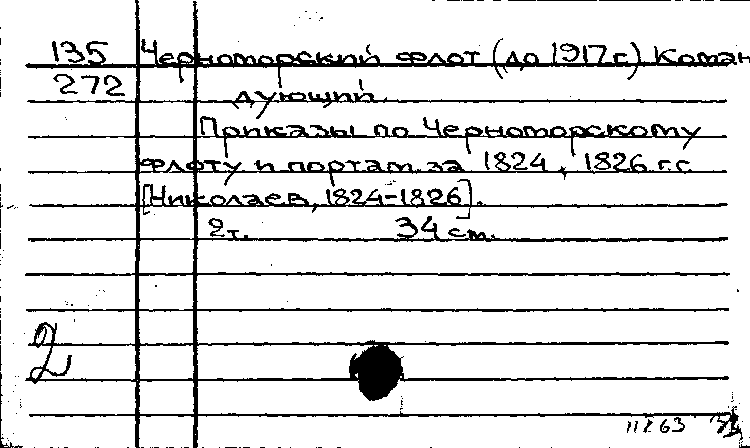 135 Черноморский флот (до 1917 г.) Коман
272 дующий.
Приказы по Черноморскому
флоту и портам за 1824, 1826 г.г.
[Николаев, 1824-1826].
2 т. 34 см.
2